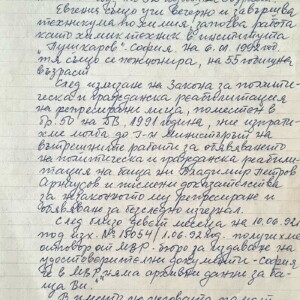 Евгения също учи вечерно и завършва
техникум по химия, започва работа
като химик техник в института
"Пушкаров"- София на 6.01.1962 год.
тя също се пенсионира, на 55 годишна
възраст.
След излизане на Закона за полити-
ческа и гражданска реабилитация
на репресирани лица, поместен в
бр.50 на ДВ, 1991 година, ние изпрати-
хме молба до г-н Министърът на
вътрешните работи за обявяването
на политическа и гражданска реабили-
тация на баща ни Владимир Петров
и писмени доказателства
за незаконното му репресиране и
обявяване за безследно изчезнал.
След близо девет месеца на 10.06.92г.
под изх. № 15054/1.06.92 год получихме
отговор от МВР - бюро за издаване на
удостоверителни документи - София
че в МВР няма архивни данни за ба-
ща Ви."